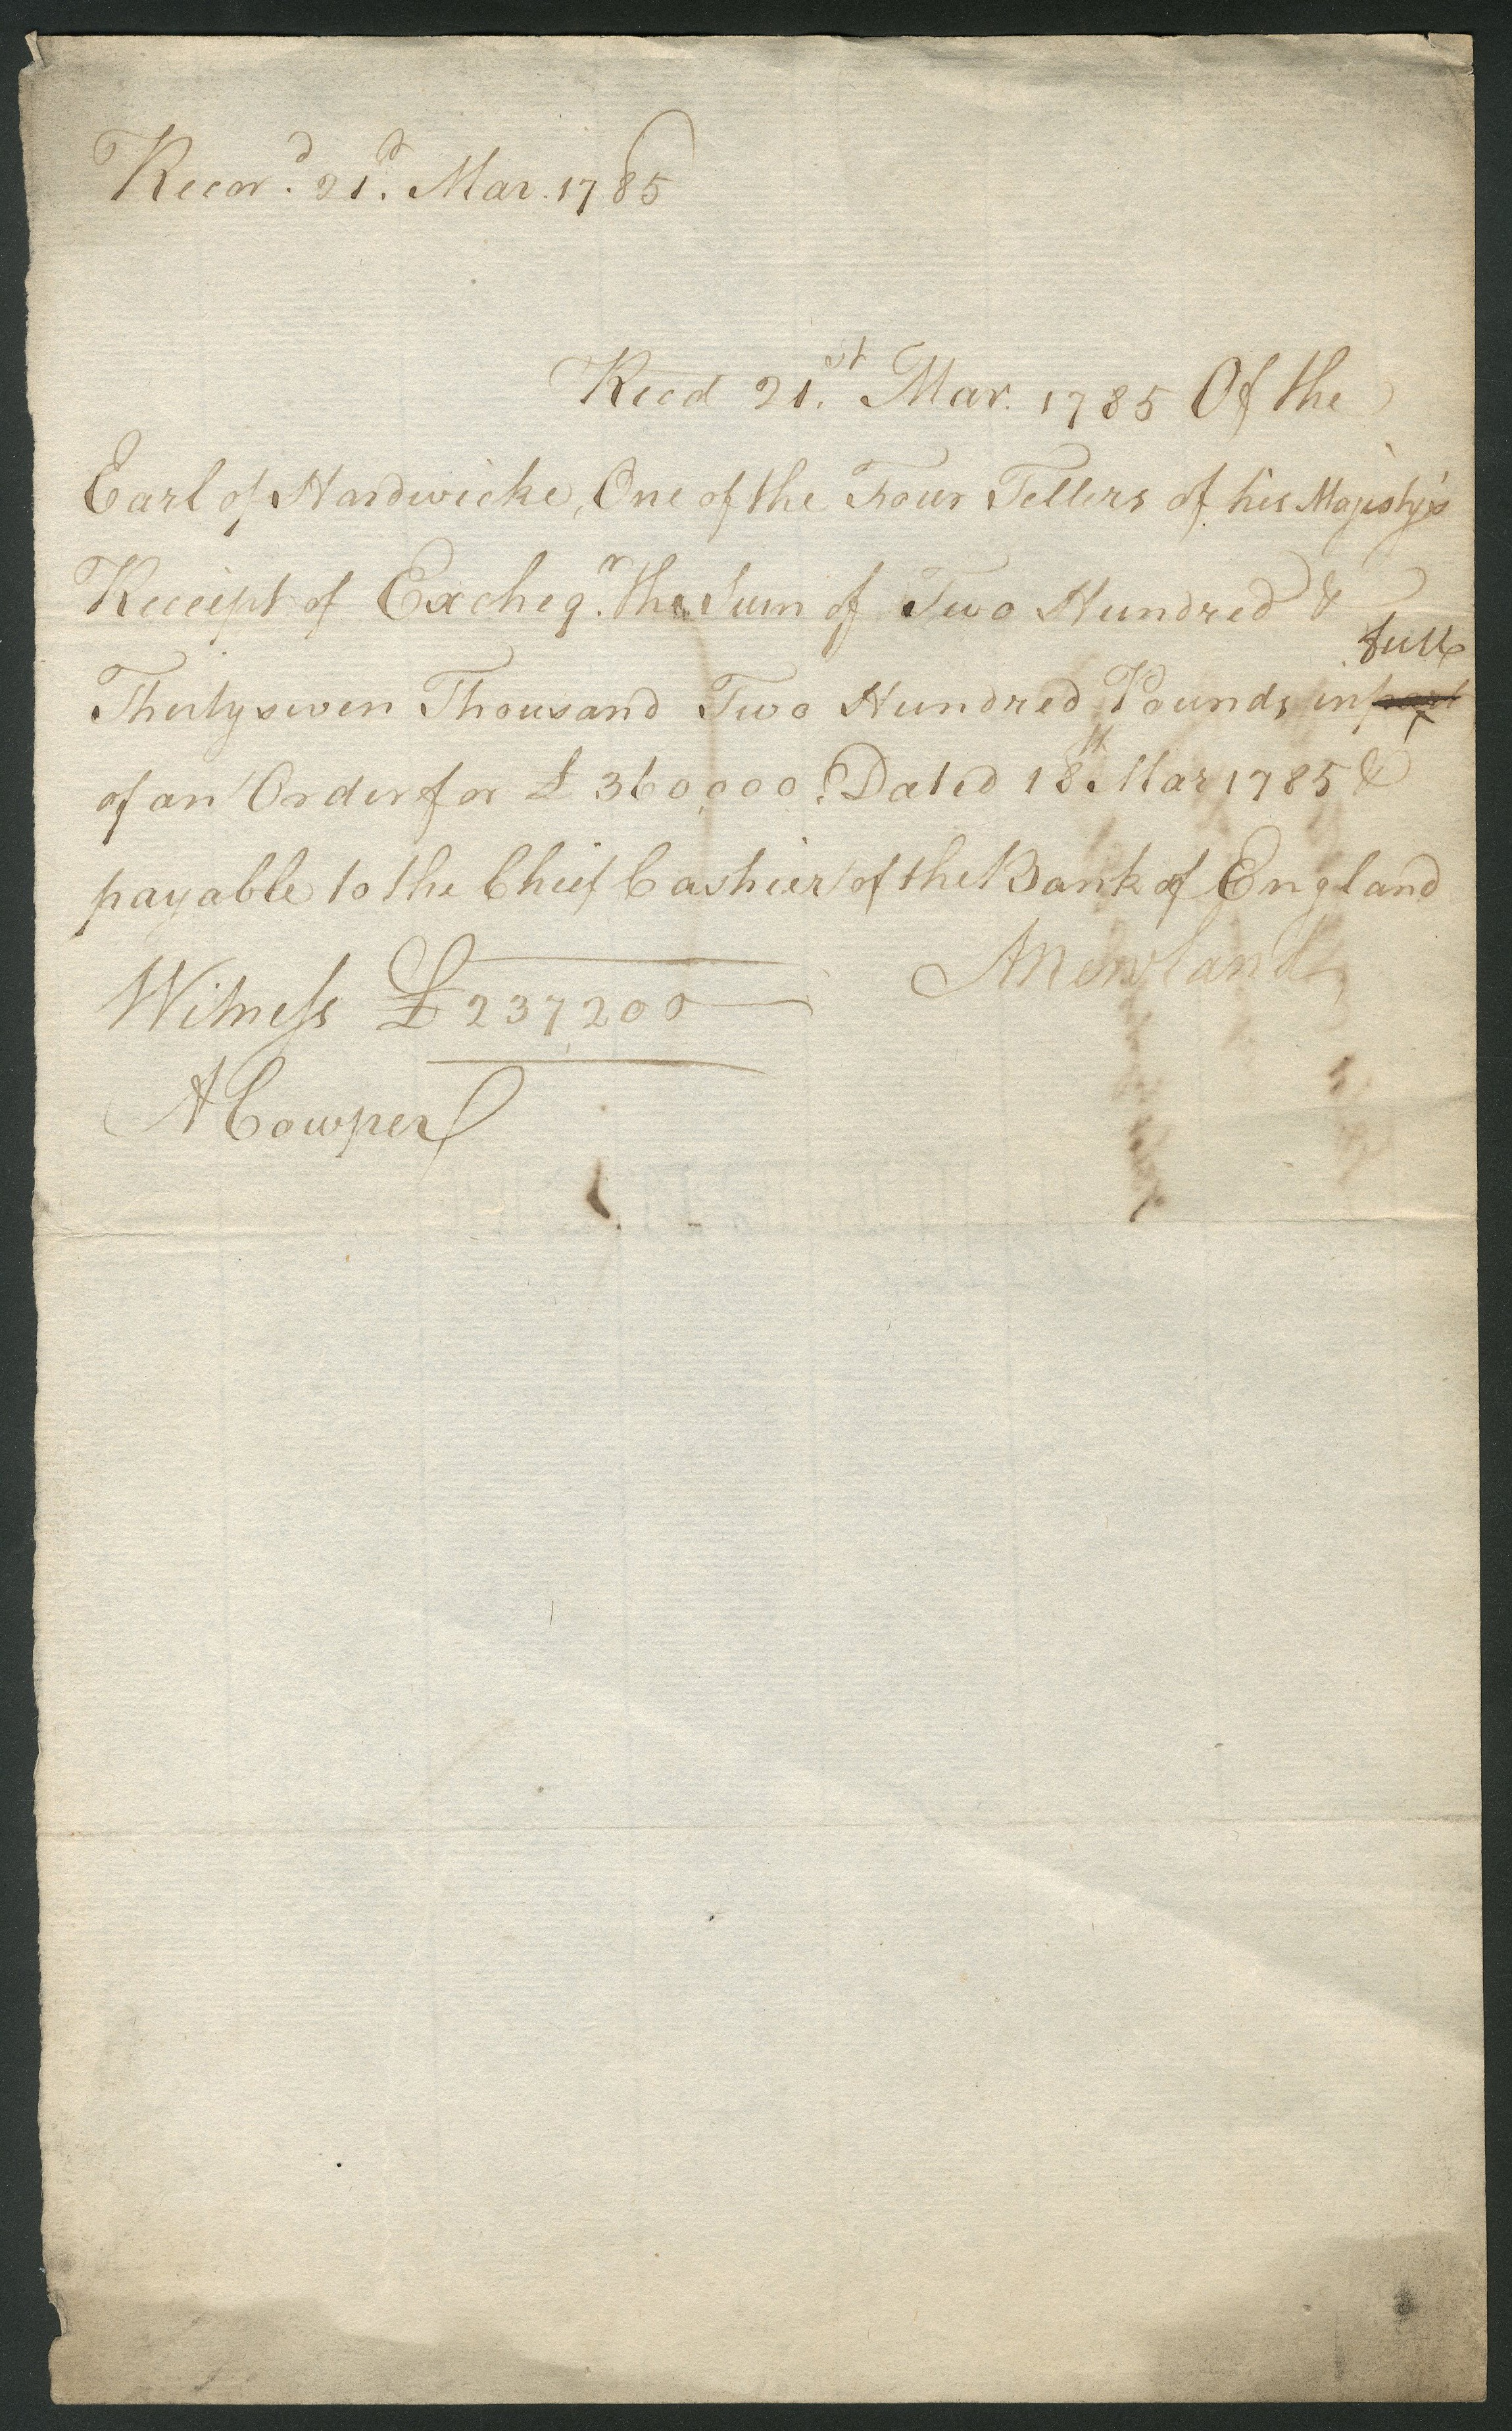 Recor.d 21.st Mar. 1785
Recd 21.st Mar. 1785 Of the
Earl of Hardwicke, One of the Four Tellers of his Majesty's
Receipt of Excheq.r the Sum of Two Hundred &
full
Thirtyseven Thousand Two Hundred Pounds in part
of an Order for £360,000. Dated 18th Mar 1785 &
payable to the Chief Cashier of the Bank of England
Witness £237,200 A Newland
A Cowper